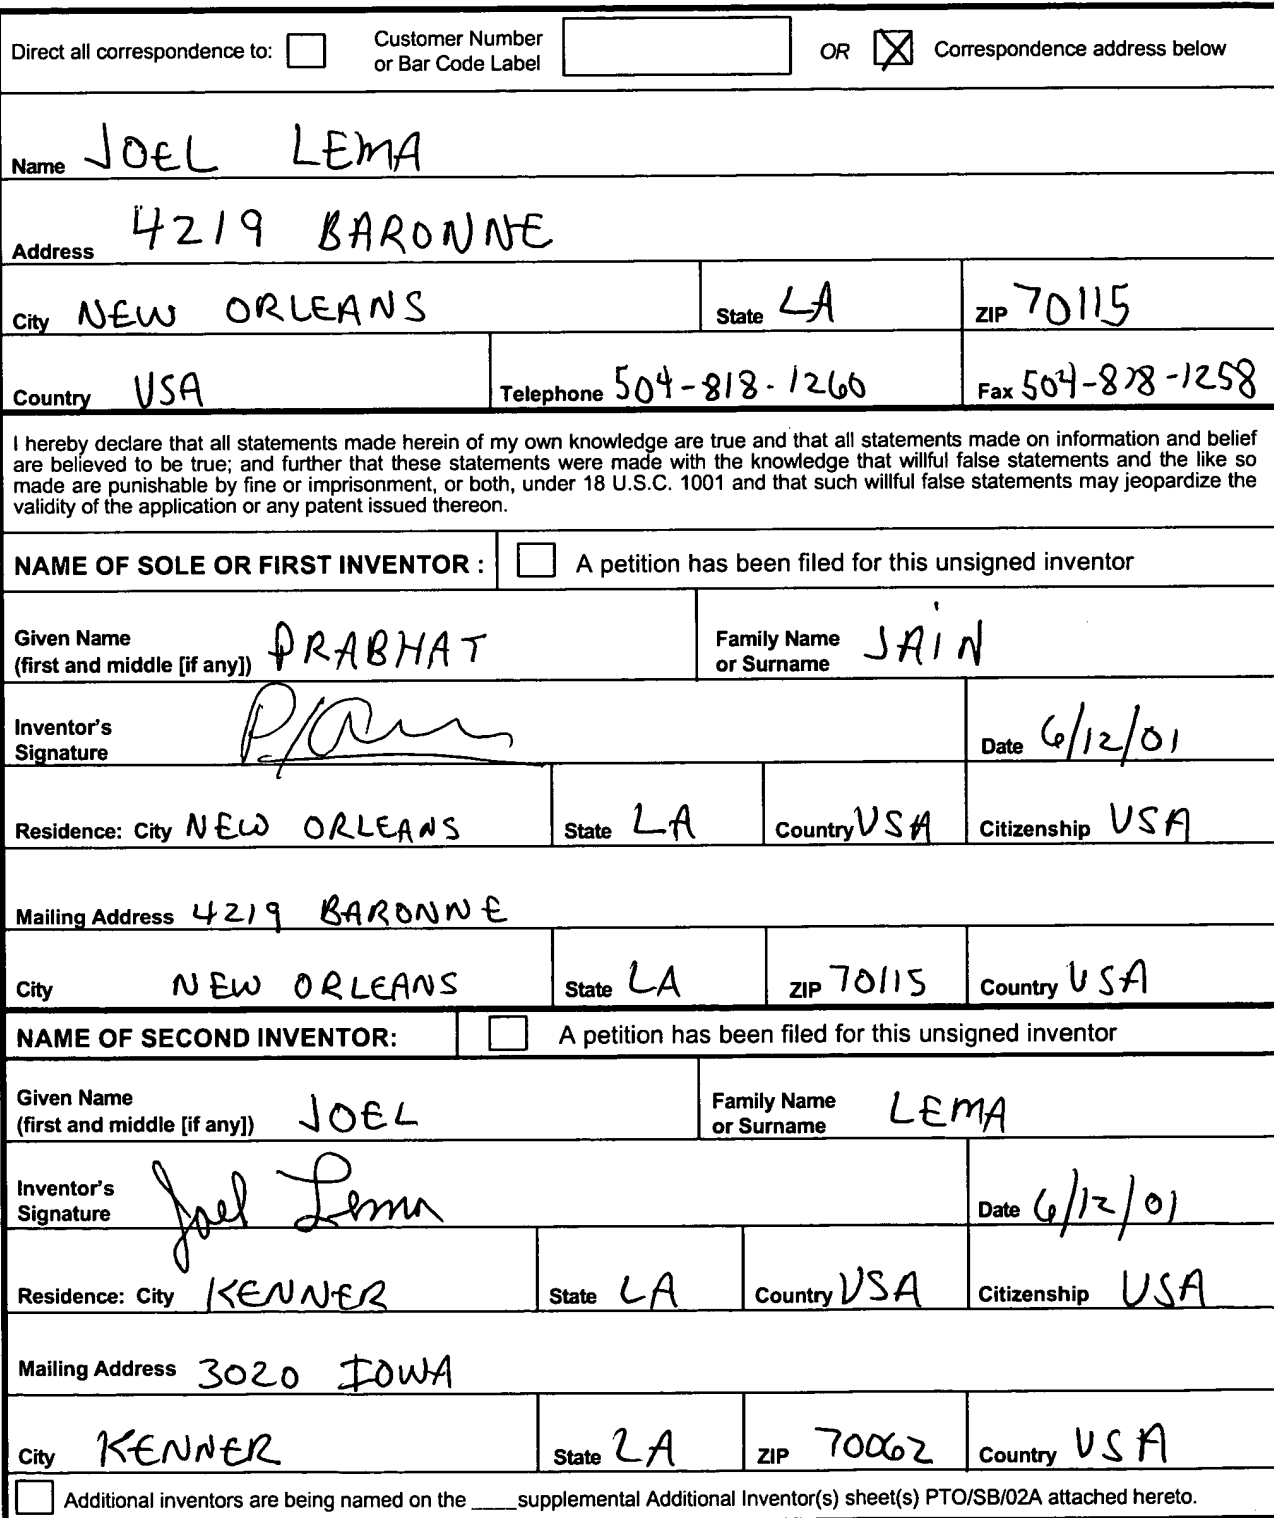 Direct all correspondence to: Customer Number or Bar Code Label OR Correspondence address below
Name JOEL LEMA
Address 4219 BARONNE
City NEW ORLEANS State LA ZIP 70115
Country USA Telephone 504-818-1260 Fax 504-818-1258
I hereby declare that all statements made herein of my own knowledge are true and that all statements made on information and belief
are believed to be true; and further that these statements were made with the knowledge that willful false statements and the like so
made are punishable by fine or imprisonment, or both, under 18 U.S.C. 1001 and that such willful false statements may jeopardize the
validity of the application or any patent issued thereon.
NAME OF SOLE OR FIRST INVENTOR : A petition has been filed for this unsigned inventor
Given Name (first and middle [if any]) PRABHAT Family Name or Surname JAIN
Inventor's Signature P. Jain Date 6/12/01
Residence: City NEW ORLEANS State LA Country USA Citizenship USA
Mailing Address 4219 BARONNE
City NEW ORLEANS State LA ZIP 70115 Country USA
NAME OF SECOND INVENTOR: A petition has been filed for this unsigned inventor
Given Name (first and middle [if any]) JOEL Family Name or Surname LEMA
Inventor's Signature Joel Lema Date 6/12/01
Residence: City KENNER State LA Country USA Citizenship USA
Mailing Address 3020 IOWA
City KENNER State LA ZIP 70062 Country USA
Additional inventors are being named on the ____supplemental Additional Inventor(s) sheet(s) PTO/SB/02A attached hereto.